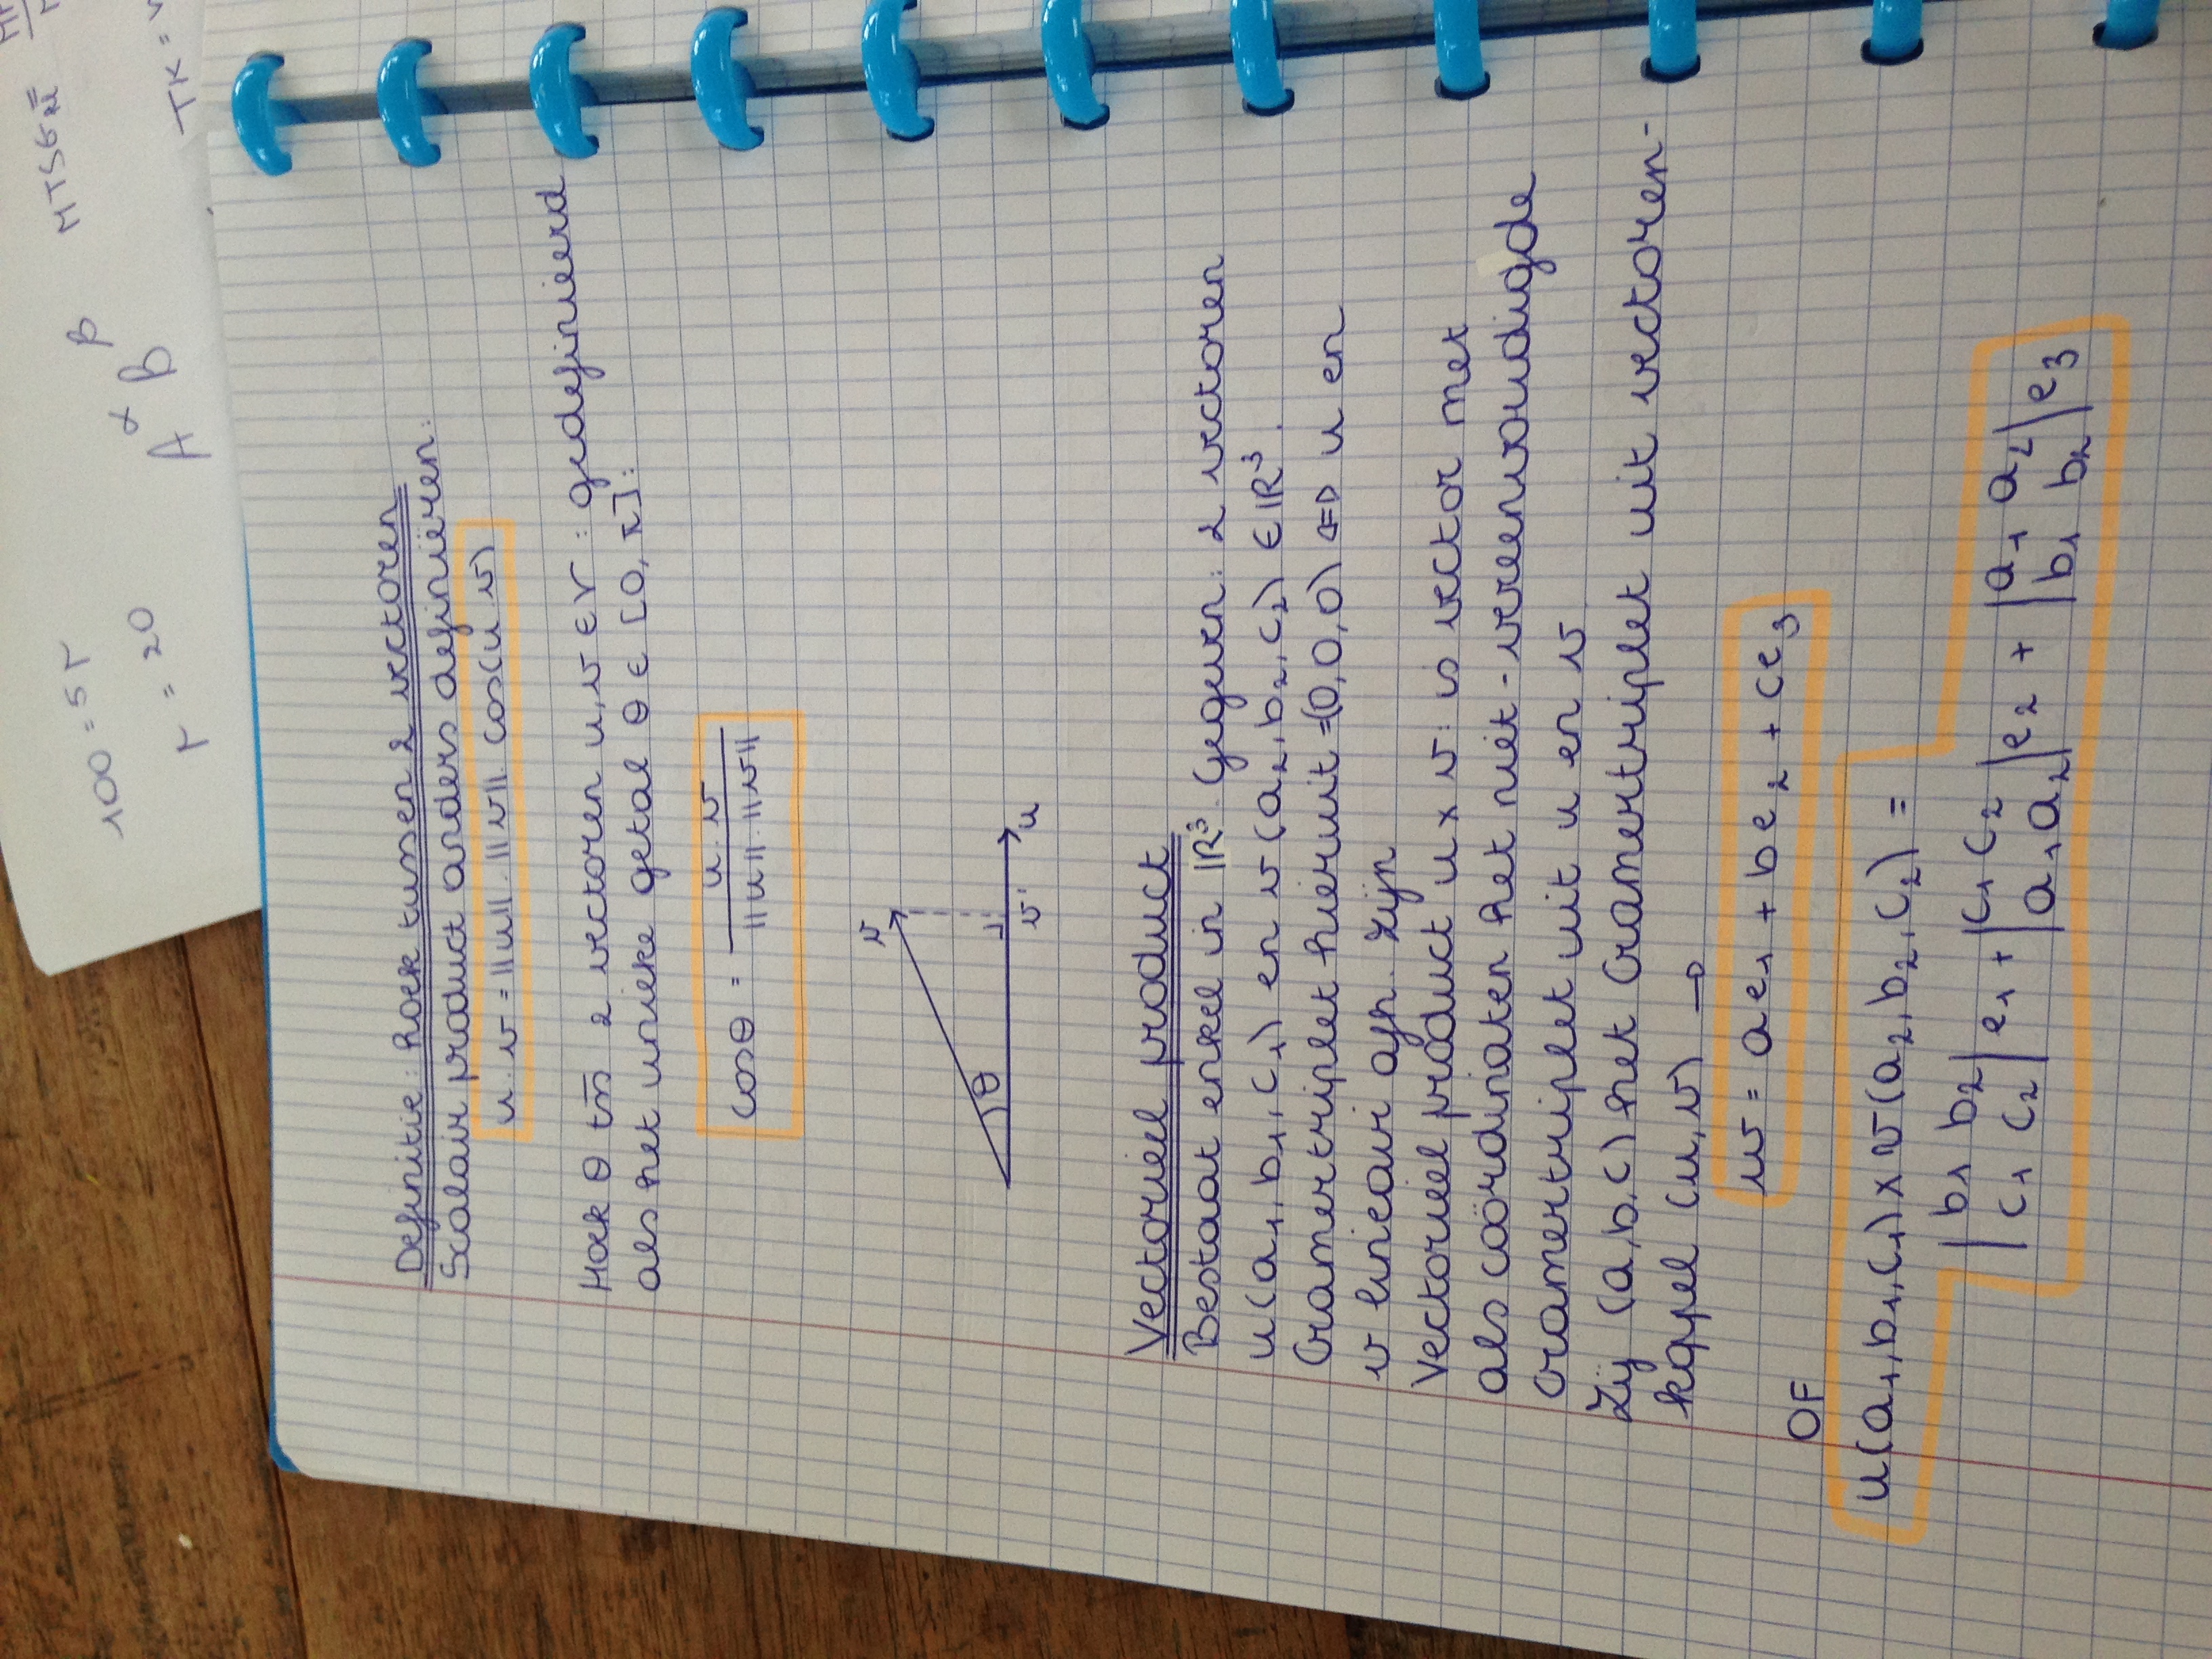 100 = 5r
r = 20
α β
A B
MTSG
TK =
Definitie: hoek tussen 2 vectoren
Scalair product anders definiëren:
u . v = ||u|| . ||v|| . cos(u v)
Hoek θ tss 2 vectoren u, v ∈ V : gedefinieerd
als het unieke getal θ ∈ [0, π]:
cos θ = u . v / ||u|| . ||v||
v
θ
v' u
Vectorieel product
Bestaat enkel in ℝ³. Gegeven: 2 vectoren
u(a₁, b₁, c₁) en v(a₂, b₂, c₂) ∈ ℝ³.
Cramertriplet hieruit = (0, 0, 0) ⇔ u en
v lineair afh. zijn
Vectorieel product u × v: is vector met
als coördinaten het niet-vereenvoudigde
cramertriplet uit u en v
Zij (a, b, c) het cramertriplet uit vectoren-
koppel (u, v) →
w = a e₁ + b e₂ + c e₃
OF
u(a₁, b₁, c₁) × v(a₂, b₂, c₂) =
|b₁ b₂| e₁ + |c₁ c₂| e₂ + |a₁ a₂| e₃
|c₁ c₂| |a₁ a₂| |b₁ b₂|